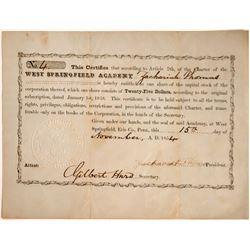 No 4
This Certifies that according to Article 7th, of the Charter of
WEST SPRINGFIELD ACADEMY, Zachariah Thomas
is hereby entitled to one share of the capital stock of the
corporation thereof, which one share consists of Twenty-Five Dollars, according to the original
subscription, dated January 1st, 1853. This certificate is to be held subject to all the terms,
rights, privileges, obligations, restrictions and provisions of the aforesaid charter, and
transferable only on the books of the corporation, in the hands of the Secretary.
Given under our hands, and the seal of said Academy, at West
Springfield, Erie Co., Penn., this 15th day of
November, A. D. 1854
President.
Attest:
Gilbert Hurd Secretary.